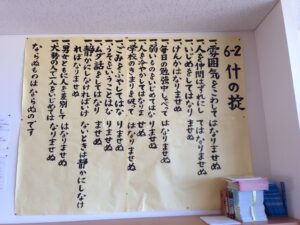 6-2 什の掟
一、雰囲気をこわしてはなりませぬ
一、人を仲間はずれにしてはなりませぬ
一、いじめをしてはなりませぬ
一、けんかはなりませぬ
一、毎日の勉強中しゃべってはなりませぬ
一、弱いものをいじめてはなりませぬ
一、人を冷やかしてはなりませぬ
一、学校のきまりを破ってはなりませぬ
一、ごみをふやしてはなりませぬ
一、うそをいうことはなりませぬ
一、ムダ話をしてはなりませぬ
一、静かにしなければいけないときは静かにしなければなりませぬ
一、男女ともに人を差別してはなりませぬ
一、大勢の人で一人をいじめてはなりませぬ
ならぬものはならぬのです